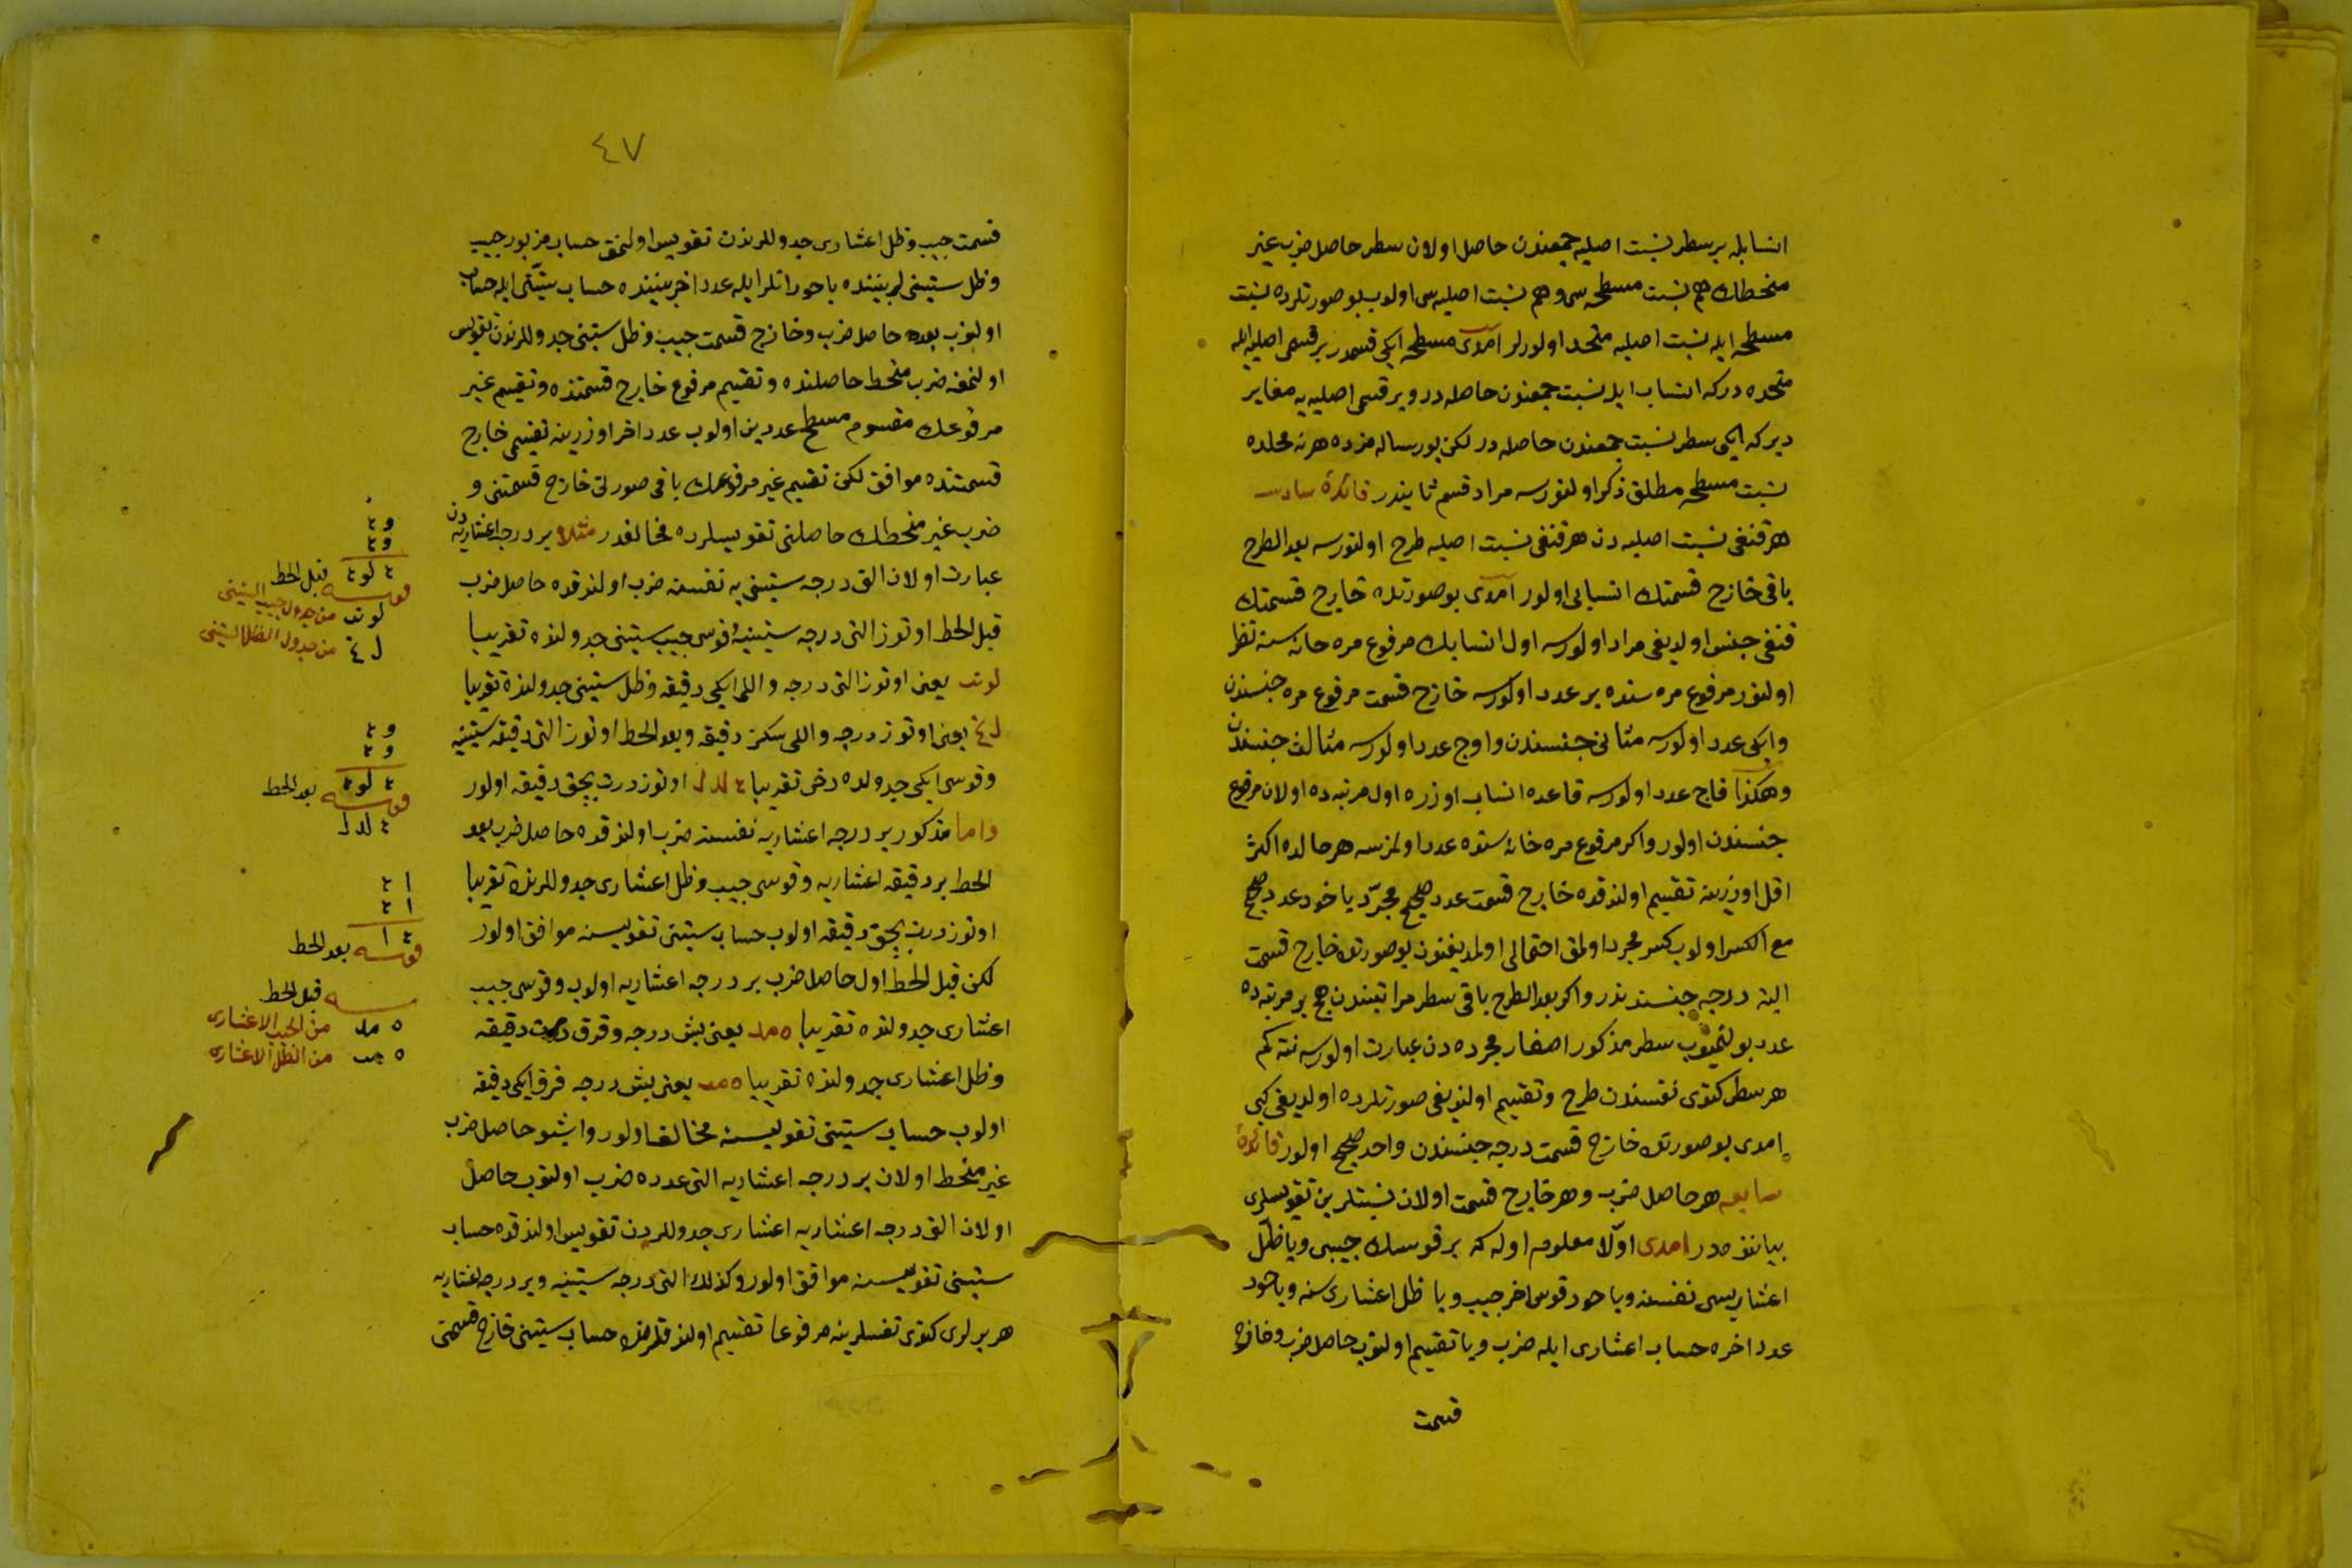 انسابله بر سطر نسبت اصلیه جمعندن حاصل اولان سطر حاصل ضرب غیر
منحطك هم نسبت مسطحه سی و هم نسبت اصلیه سی اولوب بو صورتلرده نسبت
مسطحه ایله نسبت اصلیه متحد اولورلر امدی مسطحه ایکی قسمدر بر قسمی اصلیه ایله
متحده درکه انساب ایله نسبت جمعندن حاصله در و بر قسمی اصلیه یه مغایر
دیرکه ایکی سطر نسبت جمعندن حاصله در لکن بو رساله مزده هر نه محلده
نسبت مسطحه مطلق ذکر اولنورسه مراد قسم ثانیدر فائدۀ سادسه
هر قنغی نسبت اصلیه دن هر قنغی نسبت اصلیه طرح اولنورسه بعد الطرح
باقی خارج قسمتك انسابی اولور امدی بو صورتده خارج قسمتك
قنغی جنس اولدیغی مراد اولورسه اول انسابك مرفوع مره خانه سنه نظر
اولنور مرفوع مره سنده بر عدد اولورسه خارج قسمت مرفوع مره جنسندن
وایکی عدد اولورسه مثانی جنسندن واوج عدد اولورسه مثالث جنسندن
وهكذا قاج عدد اولورسه قاعده انساب اوزره اول مرتبه ده اولان مرفوع
جنسندن اولور واكر مرفوع مره خانه سنده عدد اولمزسه هر حالده اكثر
اقل اوزرینه تقسیم اولندقده خارج قسمت عدد صحیح مجرّد یا خود عدد صحیح
مع الكسر اولوب كسر مجرد اولمق احتمالی اولمدیغندن بو صورتده خارج قسمت
البته درجه جنسندندر واكر بعد الطرح باقی سطر مراتبندن هیچ بر مرتبه ده
عدد بولنمیوب سطر مذكور اصفار مجرده دن عبارت اولورسه نته كم
هر سطر كندی نفسندن طرح وتقسیم اولندیغی صورتلرده اولدیغی كبی
امدی بو صورتده خارج قسمت درجه جنسندن واحد صحیح اولور فائدۀ
سابعه هر حاصل ضرب و هر خارج قسمت اولان نسبتلرین تقویسلری
بیاننده در امدی اوّلا معلوم اوله كه بر قوسك جیبی ویا ظلّ
اعشاریسی نفسنه ویا خود قوس اخر جیب ویا ظل اعشاری سنه ویا خود
عدد اخره حساب اعشاری ایله ضرب ویا تقسیم اولنوب حاصل ضرب و خارج
قسمت
٤٧
قسمت جیب وظل اعشاری جدوللرندن تقویس اولنمق حساب مزبور جیب
وظل ستینی لر بیننده یا خود انلر ایله عدد اخر بیننده حساب ستینی ایله حساب
اولنوب بعده حاصل ضرب وخارج قسمت جیب وظل ستینی جدوللرندن تقویس
اولنمغه ضرب منحط حاصلنده وتقسیم مرفوع خارج قسمتنده وتقسیم غیر
مرفوعك مقسوم مسطح عددین اولوب عدد اخر اوزرینه تقسیمی خارج
قسمتنده موافق لكن تقسیم غیر مرفوعك باقی صورتی خارج قسمتنی و
ضرب غیر منحطك حاصلنی تقویسلرده مخالفدر مثلا بر درجه اعشاریه دن
عبارت اولان التی درجه ستینی یه نفسنه ضرب اولندقده حاصل ضرب
قبل الحط اوتوز التی درجه ستینیه قوسی جیب ستینی جدولنده تقریبا
لو نب یعنی اوتوز التی درجه واللی ایکی دقیقه وظل ستینی جدولنده تقریبا
یعنی اوتوز درجه واللی سكز دقیقه وبعد الحط اوتوز التی دقیقه ستینیه
وقوسی ایکی جدولده دخی تقریبا ٤ لد ل اوتوز درت بچق دقیقه اولور
واما مذكور بر درجه اعشاریه نفسنه ضرب اولندقده حاصل ضرب بعد
الحط بر دقیقه اعشاریه وقوسی جیب وظل اعشاری جدوللرنده تقریبا
اوتوز درت بچق دقیقه اولوب حساب ستینی تقویسنه موافق اولور
لكن قبل الحط اول حاصل ضرب بر درجه اعشاریه اولوب وقوسی جیب
اعشاری جدولنده تقریبا ٥ مد یعنی بش درجه وقرق درت دقیقه
وظل اعشاری جدولنده تقریبا ٥ مب یعنی بش درجه قرق ایکی دقیقه
اولوب حساب ستینی تقویسنه مخالف اولور واشبو حاصل ضرب
غیر منحط اولان بر درجه اعشاریه التی عدده ضرب اولنوب حاصل
اولان التی درجه اعشاریه اعشاری جدوللردن تقویس اولندقده حساب
ستینی تقویسنه موافق اولور وكذلك التی درجه ستینیه وبر درجه اعشاریه
هر برلری كندی نفسلرینه مرفوعا تقسیم اولندقلرنده حساب ستینی خارج قسمتی
و ٤
و ٤
٤ لو ٤ قبل الحط
قوسه
لو نب من جدول جیب الستینی
من جدول الظل الستینی
و ٤
و ٤
٤ لو ٤ بعد الحط
قوسه
٤ لد ل
ا ٤
ا ٤
٤ ا بعد الحط
قوسه
قبل الحط
٥ مد من الجیب الاعشاری
٥ مب من الظل الاعشاری